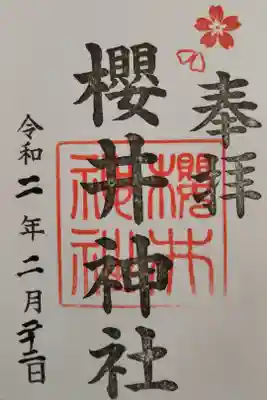 奉拝
櫻井神社
櫻井
神社
令和二年二月廿二日